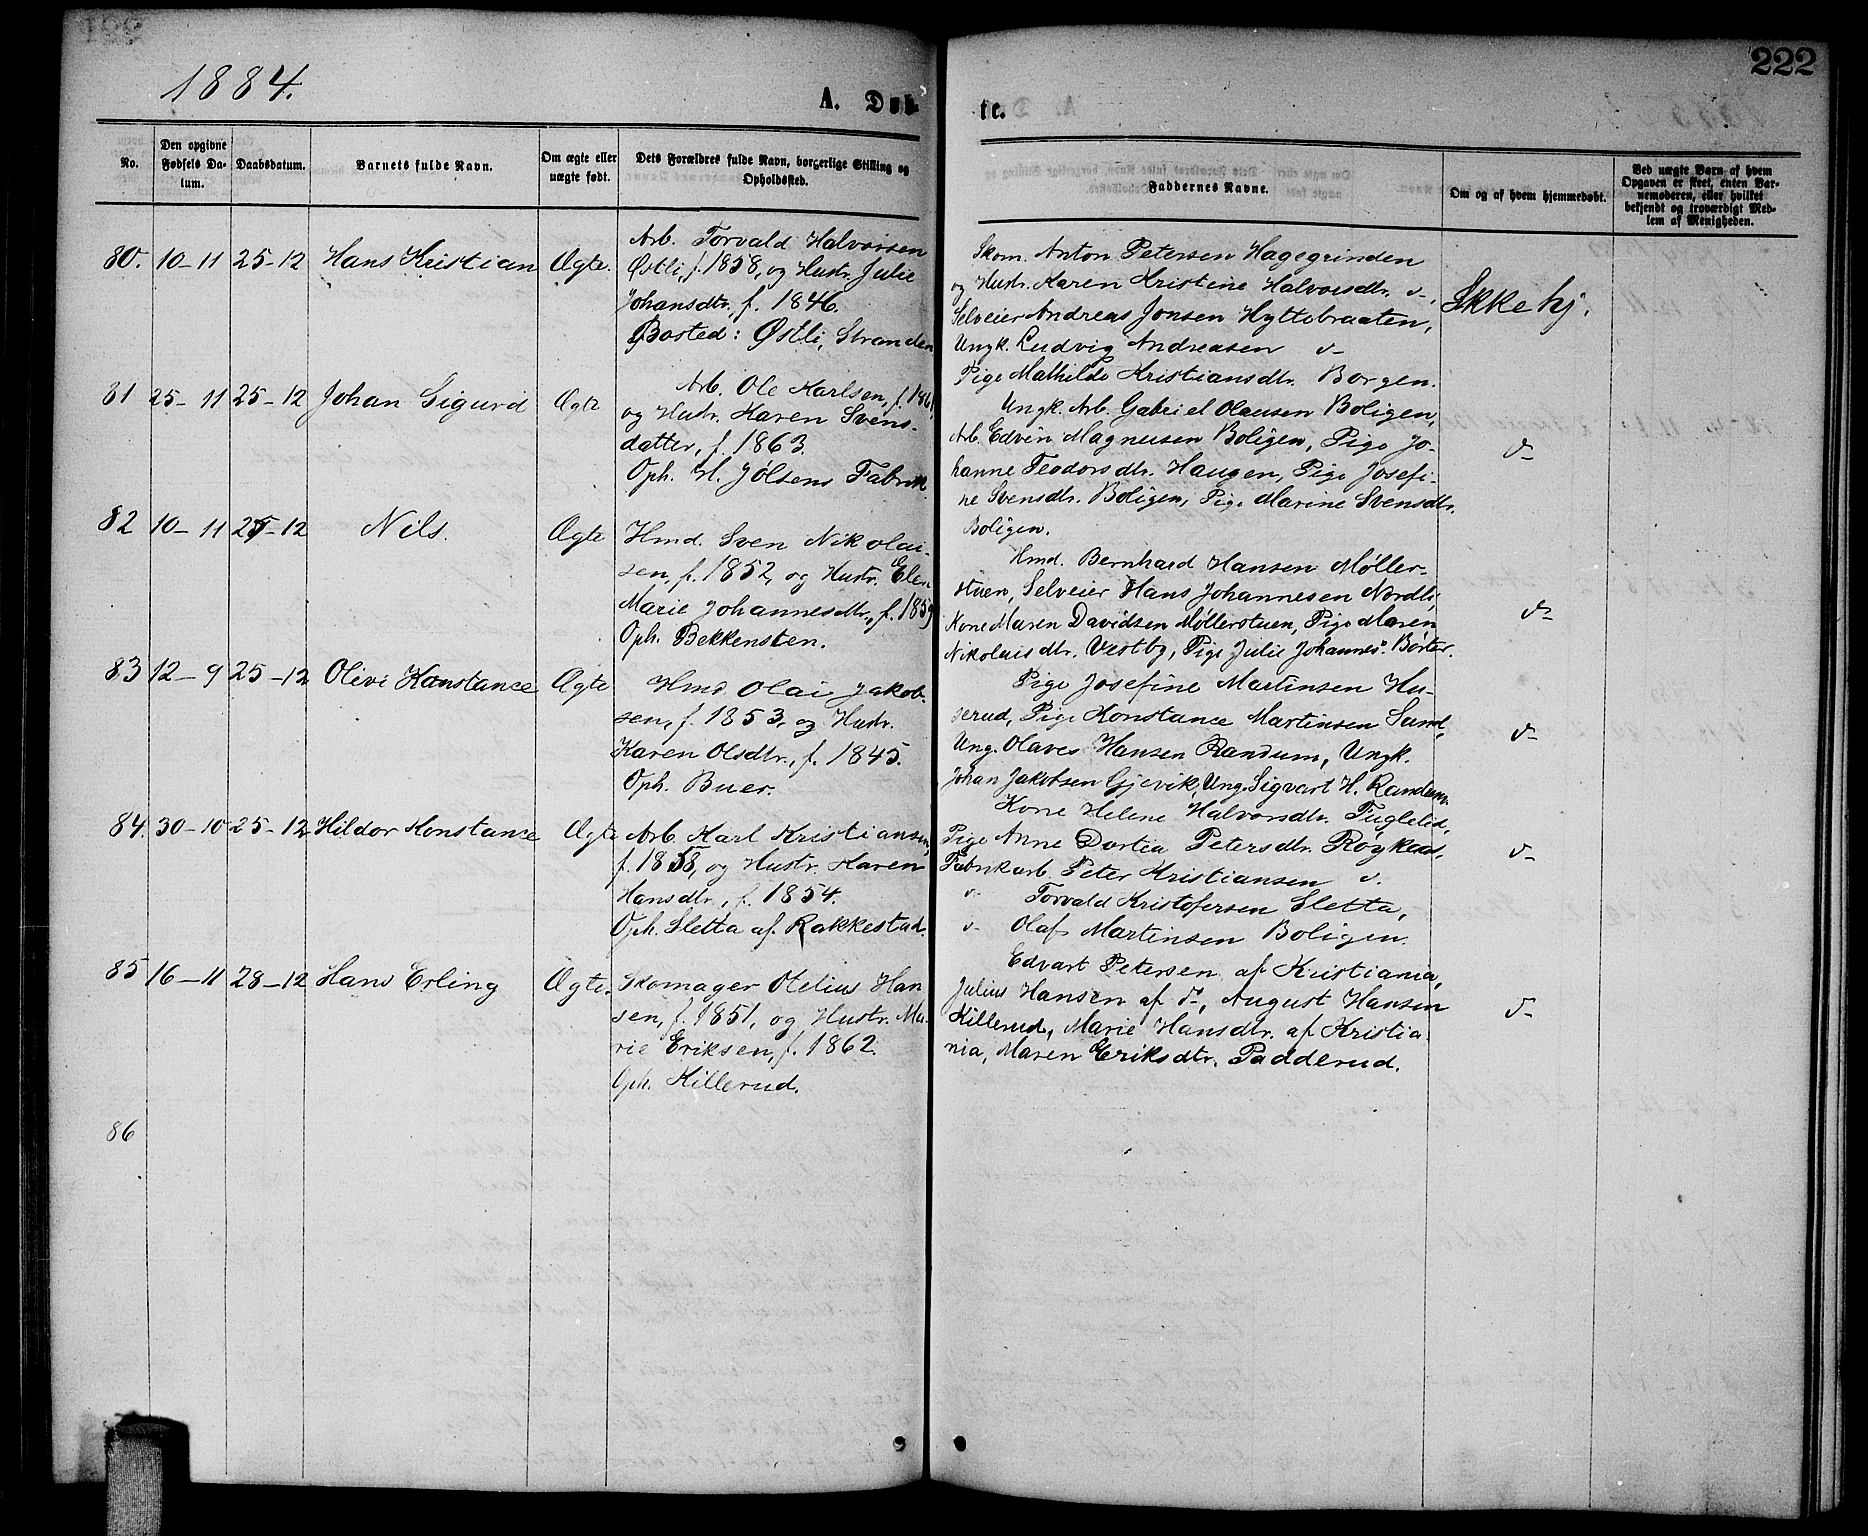 222
1884.
A. Døb-
te.
No.
Den opgivne Fødsels Da-tum.
Daabsdatum.
Barnets fulde Navn.
Om ægte eller uægte født.
Dets Forældres fulde Navn, borgerlige Stilling og Opholdssted.
Faddernes Navne.
Om og af hvem hjemmedøbt.
Ved uægte Børn af hvem Opgaven er skeet, enten Bar-nemoderen, eller hvilket bekjendt og troværdigt Med-lem af Menigheden.
80. 10-11 25-12 Hans Kristian Ægte.
Arb. Torvald Halvorsen
Østli, f. 1858, og Hustr. Julie
Johansdtr. f. 1846.
Bosted: Østli, Stranden
Skom. Anton Petersen Hagegrinden
og Hustr. Karen Kristine Halvorsdtr. d-,
Selveier Andreas Jonsen Hyttebraaten,
Ungk. Ludvig Andreasen d-
Pige Mathilde Kristiansdtr. Borgen.
Ikke hj.
81 25-11 25-12 Johan Sigurd Ægte
Arb. Ole Karlsen, f. 1861
og Hustr. Karen Svens-
datter, f. 1863.
Oph. H. Jølsens Fabrik
Ungk. Arb. Gabriel Olausen Boligen,
Arb. Edvin Magnusen Boligen, Pige Jo-
hanne Teodorsdtr. Haugen, Pige Josefi-
ne Svensdtr. Boligen, Pige Marine Svensdtr.
Boligen.
d-
82 10-11 25-12 Nils. Ægte
Hmd. Sven Nikolai-
sen, f. 1852, og Hustr. Elen
Marie Johannesdtr., f. 1859
Oph. Bekkensten.
Hmd. Bernhard Hansen Møller-
stuen, Selveier Hans Johannesen Nordli,
Kone Maren Davidsen Møllerstuen, Pige Maren
Nikolaisdtr. Vestby, Pige Julie Johannes. Børter.
d-
83 12-9 25-12 Olivi Konstance Ægte
Hmd. Olai Jakob-
sen, f. 1853, og Hustr.
Karen Olsdtr., f. 1845.
Oph. Buer.
Pige Josefine Martinsen Hu-
serud, Pige Konstance Martinsen Sand,
Ung. Olaves Hansen Randum, Ungk.
Johan Jakobsen Gjevik, Ung. Sigvart H. Randum.
d-
84. 30-10 25-12 Hildor Konstance Ægte
Arb. Karl Kristiansen,
f. 1858, og Hustr. Karen
Hansdtr., f. 1854.
Oph. Sletta af Rakkestad.
Kone Helene Halvorsdtr. Fuglelid,
Pige Anne Dortea Petersdtr. Røykeas,
Fabrikarb. Peter Kristiansen d.
d- Torvald Kristofersen Sletta,
d- Olaf Martinsen Boligen.
d-
85 16-11 28-12 Hans Erling Ægte.
Skomager Otelius Han
sen, f. 1851, og Hustr. Ma-
rie Eriksen, f. 1862.
Oph. Killerud.
Edvart Petersen af Kristiania,
Julius Hansen af d-, August Hansen
Killerud, Marie Hansdtr. af Kristia-
nia, Maren Eriksdtr. Padderud.
d-
86